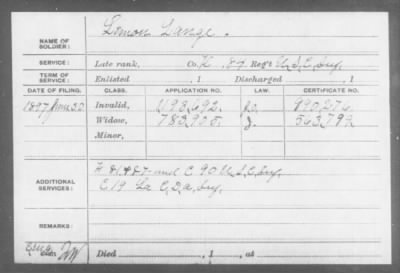 NAME OF SOLDIER: Simon Lange.
SERVICE: Late rank, Co. K, 84 Reg't U.S.C. Inf.
TERM OF SERVICE: Enlisted , 1 Discharged , 1
DATE OF FILING. CLASS. APPLICATION NO. LAW. CERTIFICATE NO.
1897 Invalid, 1198,692. 990,276
Widow, 783,908. 563,792
Minor,
ADDITIONAL SERVICES: 81, 87 and C 90 U.S.C. Inf.
C 19 La C.D.A. Inf.
REMARKS:
Died , 1 , at